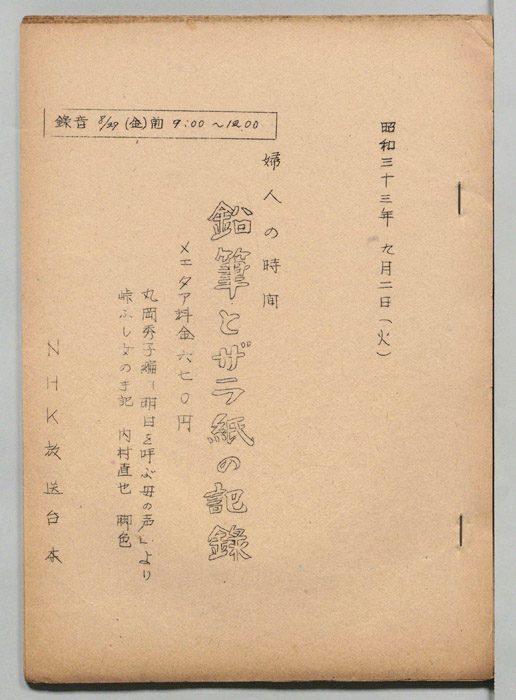 昭和三十三年 九月二日(火)
婦人の時間
鉛筆とザラ紙の記録
メエタア料金六七〇円
丸岡秀子編「明日を呼ぶ母の声」より
峠ふじ女の手記 内村直也 脚色
NHK放送台本
録音 8/29 (金)前 9:00〜12.00